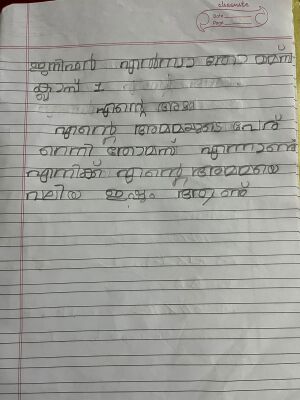 classmate
Date
Page
എൽസാ തോമസ്
ക്ലാസ് 1
എന്റെ അമ്മ
എന്റെ അമ്മയുടെ പേര്
തോമസ് എന്നാണ്
എനിക്ക് എന്റെ അമ്മയെ
വലിയ ഇഷ്ടം ആണ്